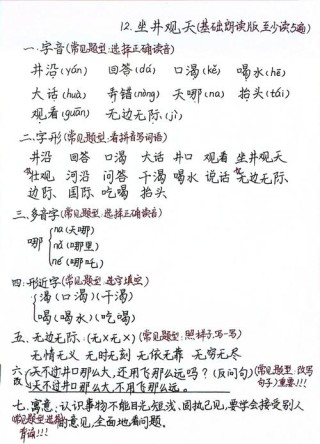 12.坐井观天(基础朗读版,至少读5遍)
一.字音(常见题型:选择正确读音)
井沿(yán) 回答(dá) 口渴(kě) 喝水(hē)
大话(huà) 弄错(nòng) 天哪(na) 抬头(tái)
观看(guān) 无边无际(jì)
二.字形(常见题型:看拼音写词语)
井沿 回答 口渴 大话 井口 观看 坐井观天
壮观 河沿 问答 干渴 喝水 说话 无边无际
边际 国际 吃喝 抬头
三.多音字(常见题型:选择正确读音)
哪 na(天哪)
nǎ(哪里)
né(哪吒)
四.形近字(常见题型:选字填空)
渴(口渴)(干渴)
喝(喝水)(吃喝)
五.无边无际:(无×无×)(常见题型:照样子写一写)
无情无义 无时无刻 无依无靠 无穷无尽
六.天不过井口那么大,还用飞那么远吗?(反问句)(常见题型:改写句子)重要!!!
改:天不过井口那么大,不用飞那么远。
七.寓意:认识事物不能目光短浅、固执己见,要学会接受别人
的意见,全面地看问题。
(常见题型:选择)
背诵!!!